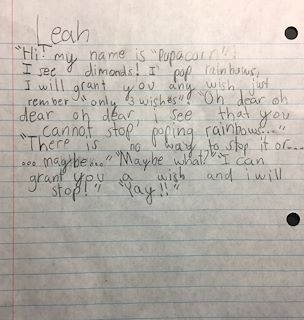 Leah
"Hi! my name is "Pupacorn"!
I see dimonds! I pop rainbows,
I will grant you any wish just
rember "only 3 wishes". "Oh dear oh
dear oh dear, i see that you
cannot stop poping rainbows..."
"There is no way to stop it or...
... maybe..." "Maybe what?" "I can
grant you a wish and i will
stop!" "Yay!!"